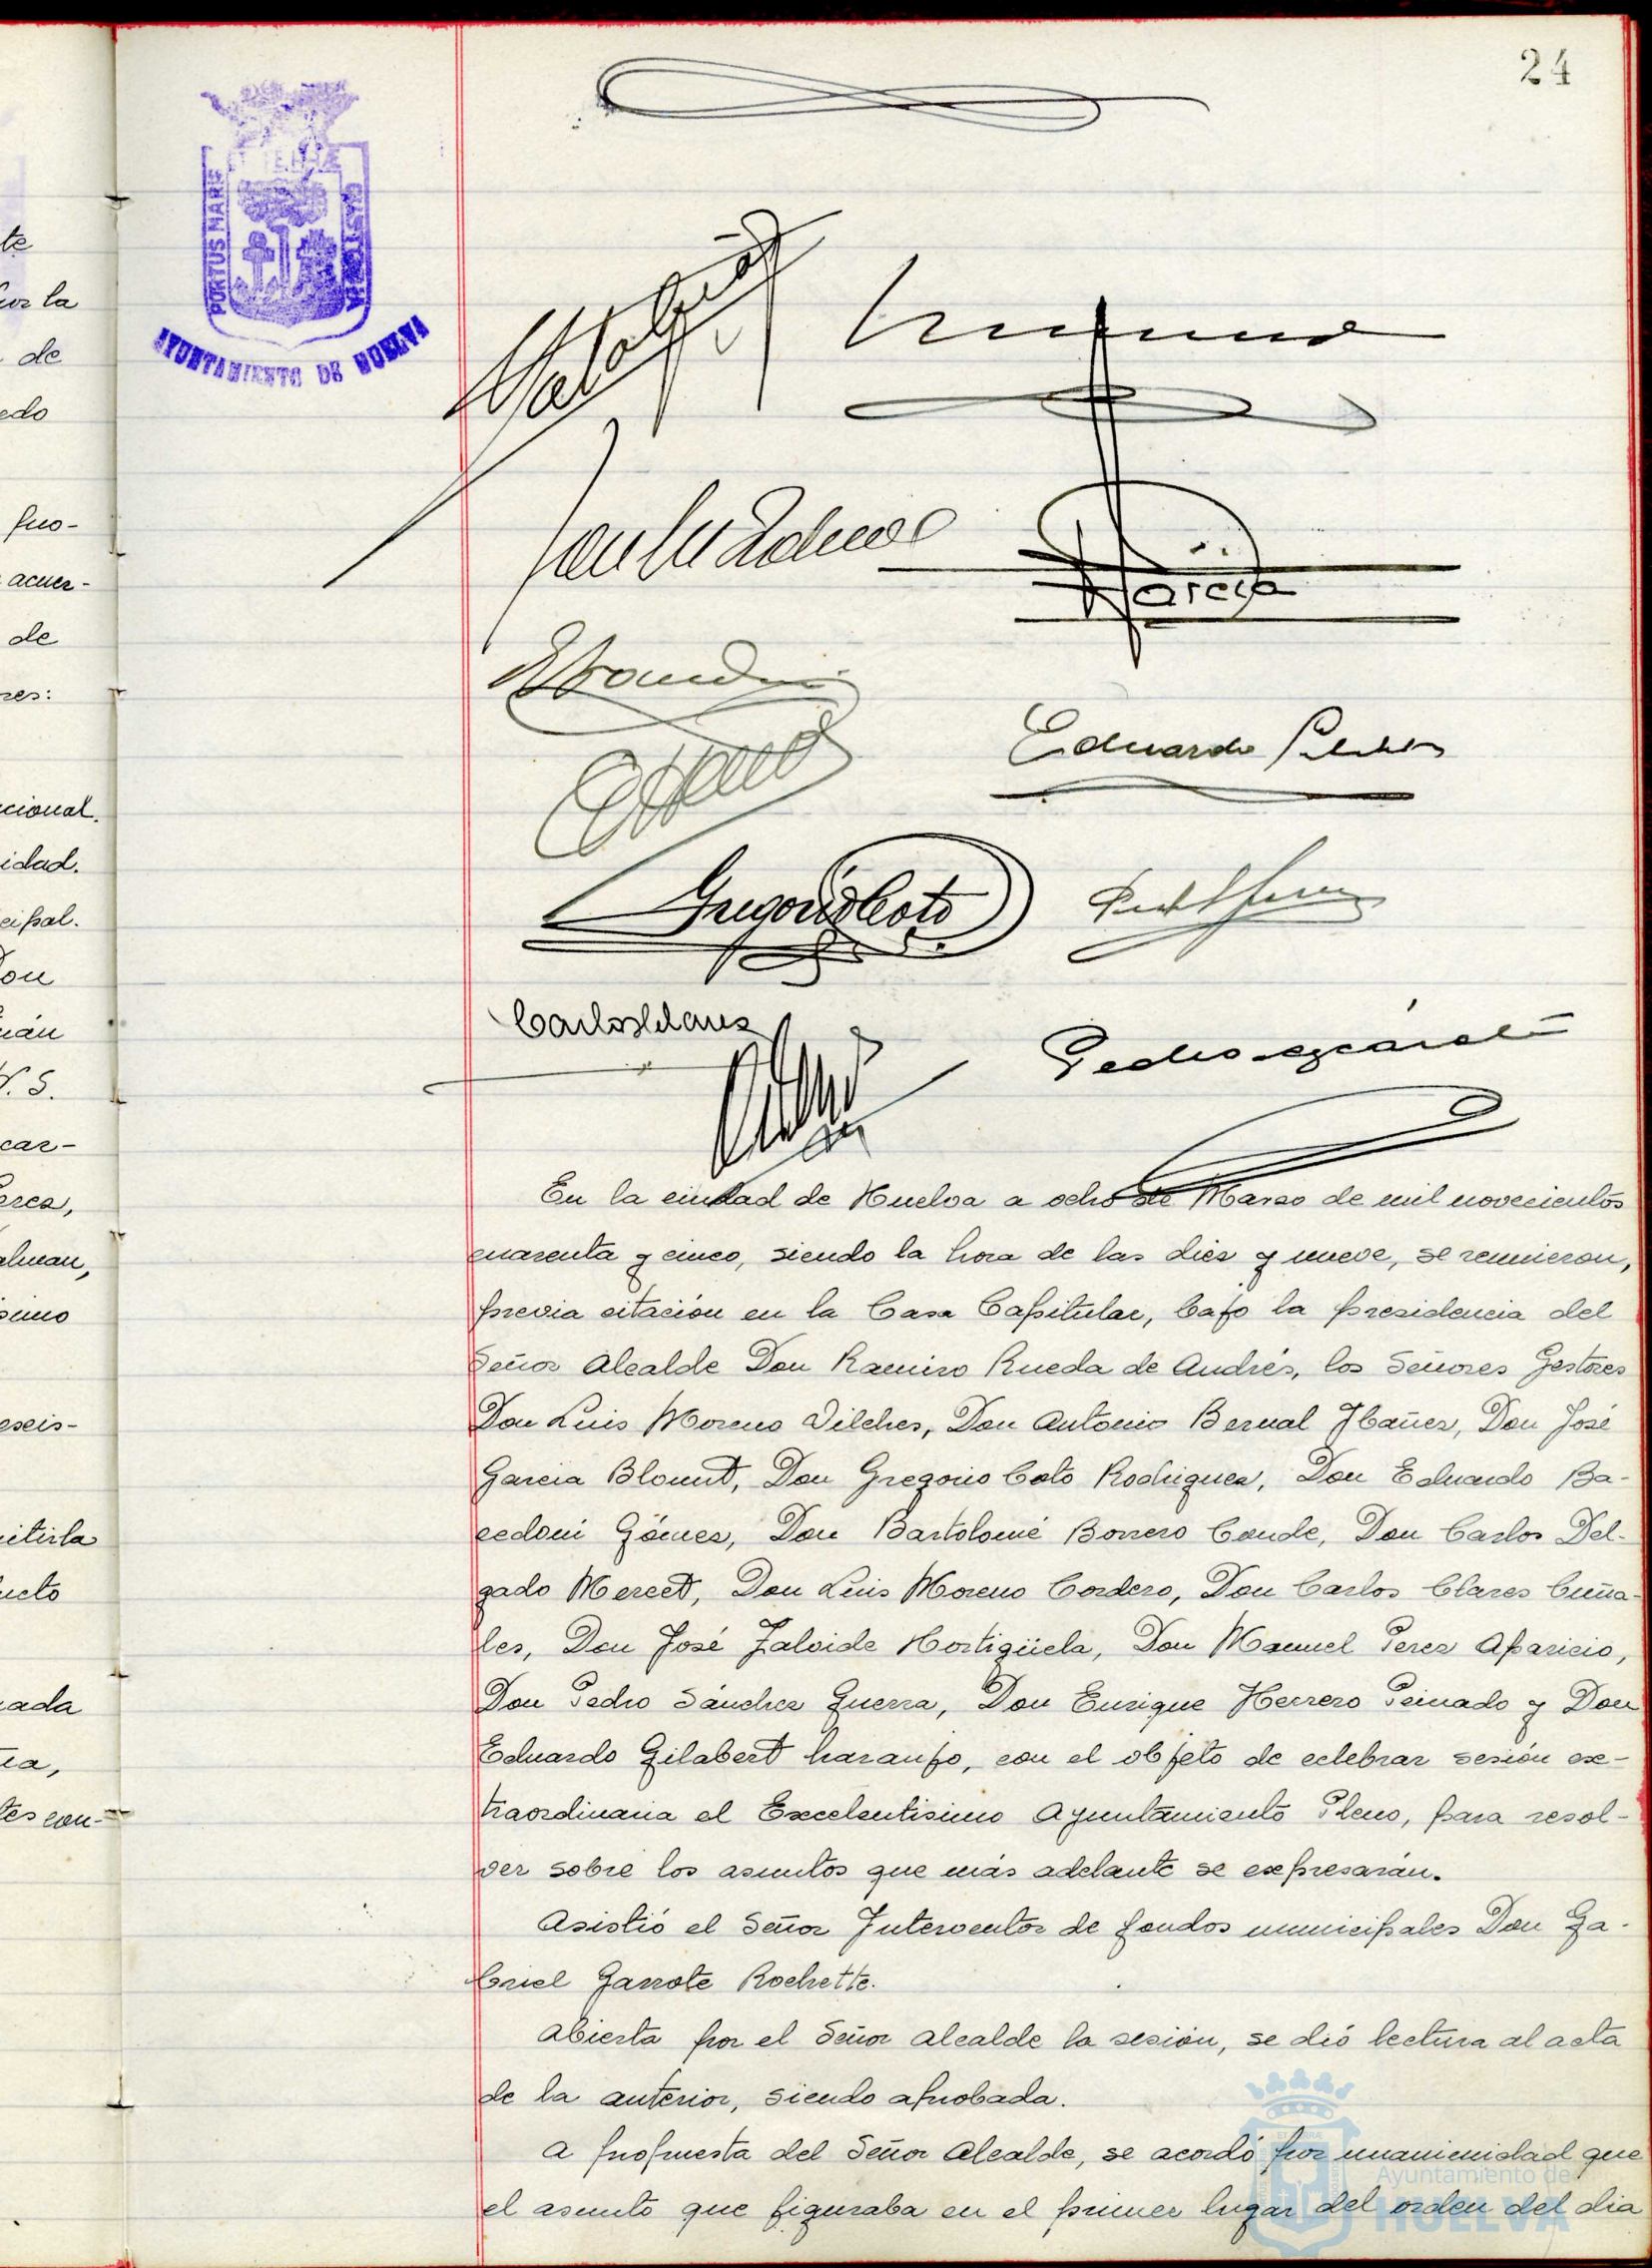 24
PORTUS MARIS
AYUNTAMIENTO DE HUELVA
te
por la
de
edo
pro-
acuer-
de
res:
cional.
idad.
cipal.
Don
V. S.
car-
Perez,
simo
eseis-
ada
García
Eduardo
Gregorio Coto
Carlos Clares
En la ciudad de Huelva a ocho de Marzo de mil novecientos
cuarenta y cinco, siendo la hora de las diez y nueve, se reunieron,
previa citación en la Casa Capitular, bajo la presidencia del
Señor Alcalde Don Ramiro Rueda de Andrés, los Señores Gestores
Don Luis Moreno Vilches, Don Antonio Bernal Ybañez, Don José
Garcia Blount, Don Gregorio Coto Rodriguez, Don Eduardo Ba-
cedoni Gómez, Don Bartolomé Borrero Conde, Don Carlos Del-
gado Mercet, Don Luis Moreno Cordero, Don Carlos Clares Cuña-
les, Don José Zalvide Hortigüela, Don Manuel Perez Aparicio,
Don Pedro Sánchez Guerra, Don Enrique Herrero Peinado y Don
Eduardo Gilabert Naranjo, con el objeto de celebrar sesión ex-
traordinaria el Excelentisimo Ayuntamiento Pleno, para resol-
ver sobre los asuntos que más adelante se expresarán.
Asistió el Señor Interventor de fondos municipales Don Ga-
briel Garrote Rochette.
Abierta por el Señor Alcalde la sesión, se dió lectura al acta
de la anterior, siendo aprobada.
A propuesta del Señor Alcalde, se acordó por unanimidad que
el asunto que figuraba en el primer lugar del orden del dia
Ayuntamiento de
HUELVA